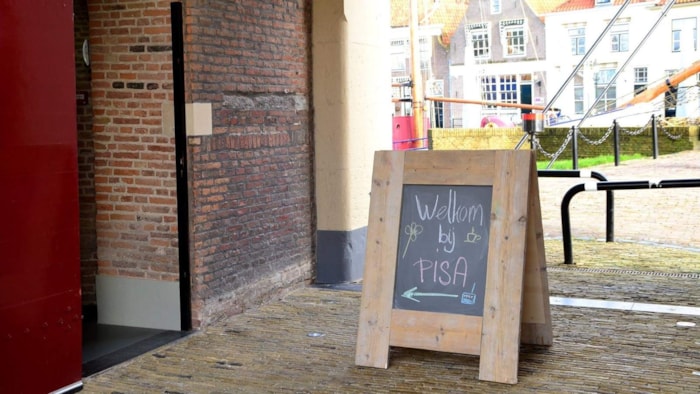 Welkom
bij
PISA